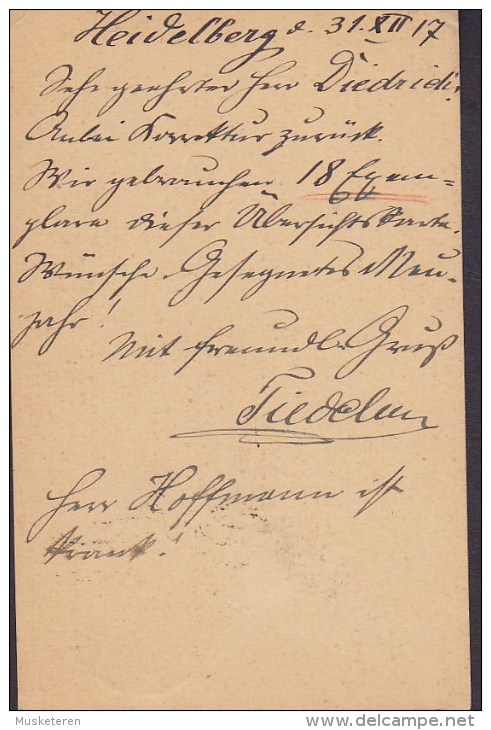 Heidelberg d. 31. XII 17
Sehr geehrter Herr Diedrich!
Anbei Korrektur zurück.
Wir gebrauchen 18 Exem-
plare dieser Übersichtskarte.
Wünsche Gesegnetes Neu-
jahr!
Mit freundl. Gruß
Herr Hoffmann ist
krank!
Musketeren
www.delcampe.net